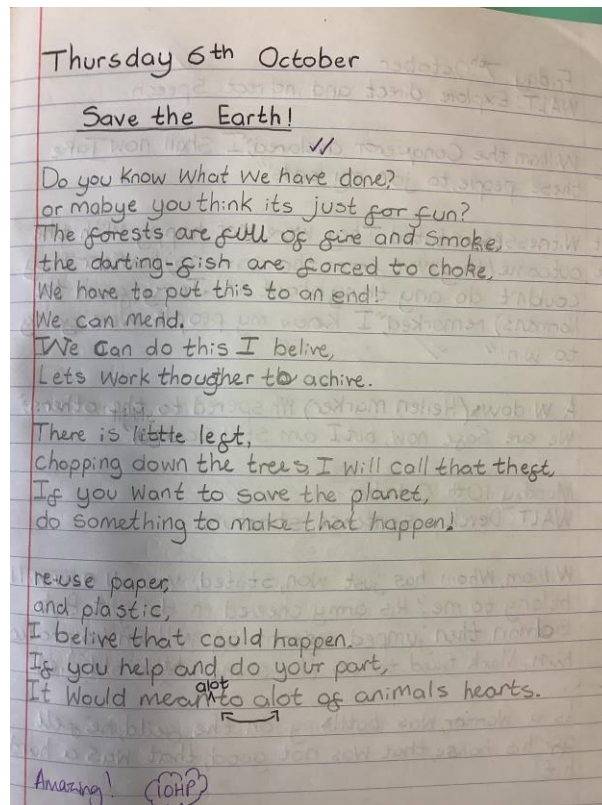 Thursday 6th October
Save the Earth!
Do you know what we have done?
or mabye you think its just for fun?
The forests are full of fire and smoke,
the darting-fish are forced to choke,
We have to put this to an end!
We can mend.
We can do this I belive,
Lets work thougher to achive.
There is little left,
Chopping down the trees I will call that theft,
If you want to save the planet,
do something to make that happen!
re-use paper,
and plastic,
I belive that could happen.
If you help and do your part,
alot
It would mean to alot of animals hearts.
Amazing! 10HP